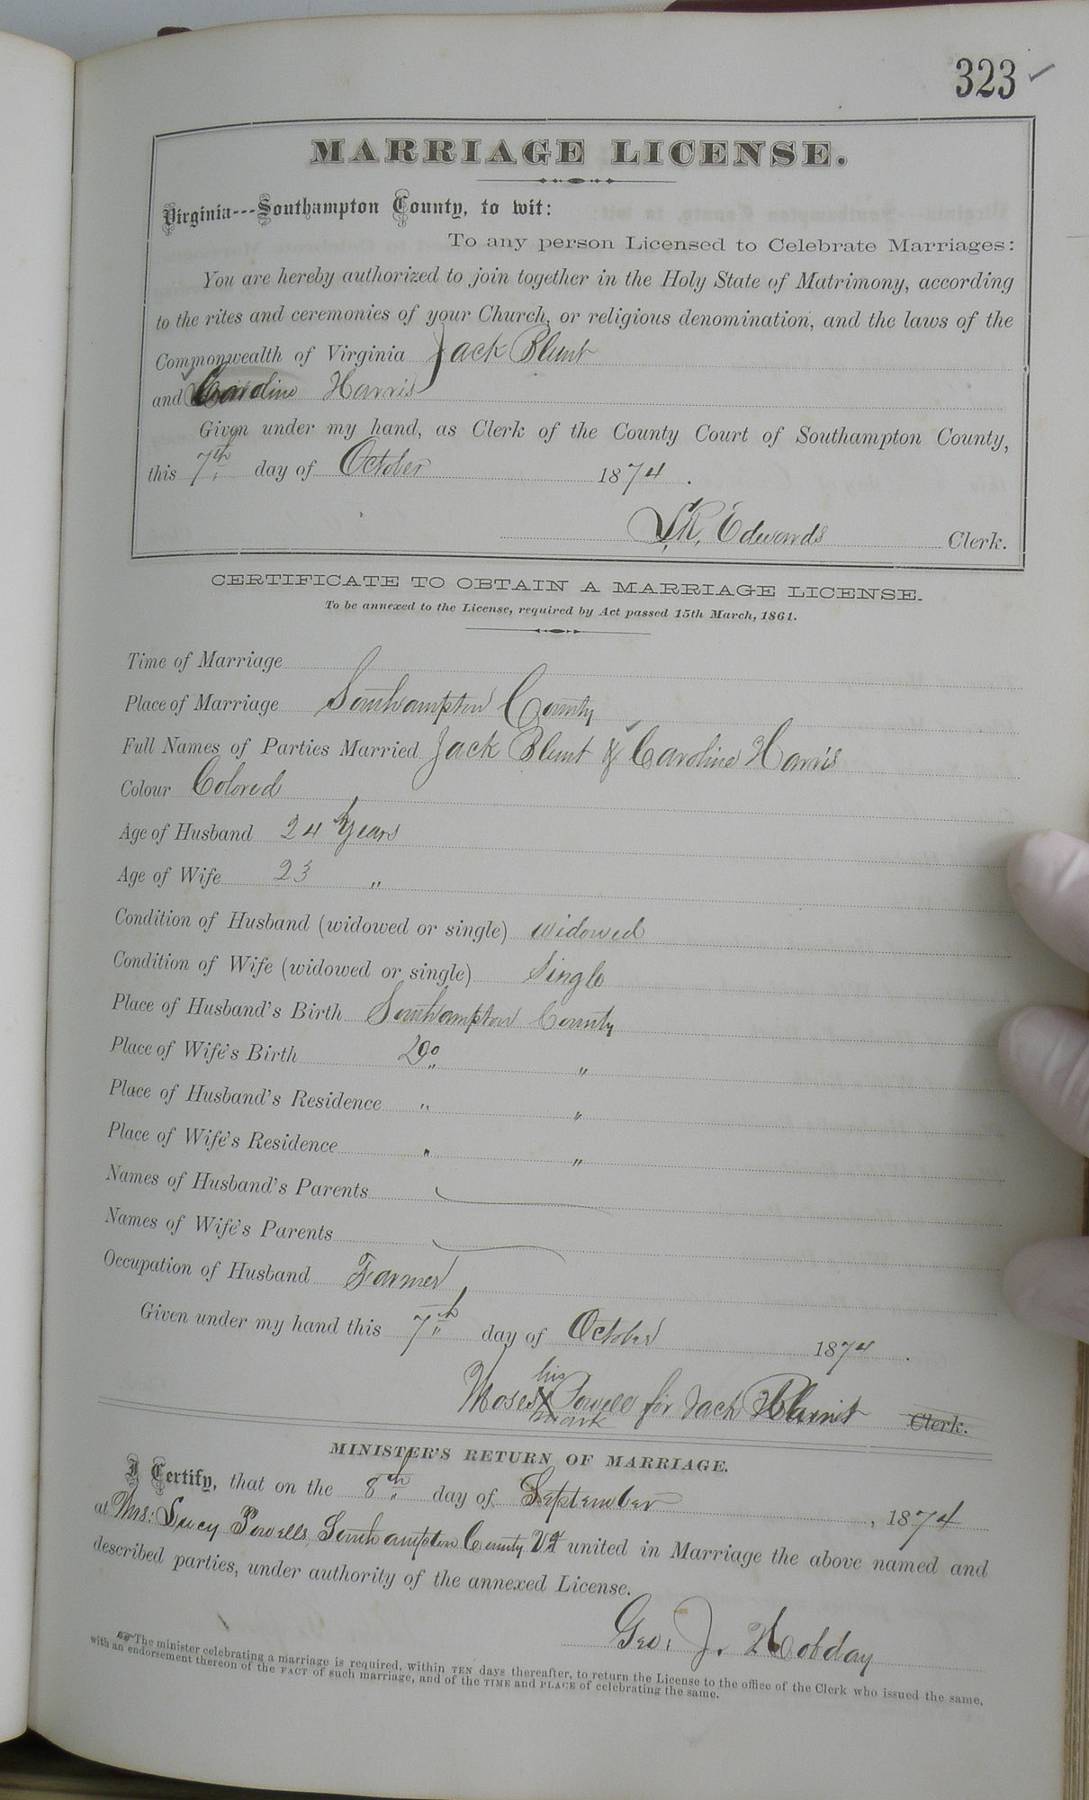 323 ✓
MARRIAGE LICENSE.
Virginia---Southampton County, to wit:
To any person Licensed to Celebrate Marriages:
You are hereby authorized to join together in the Holy State of Matrimony, according
to the rites and ceremonies of your Church, or religious denomination, and the laws of the
Commonwealth of Virginia Jack Blunt
and Caroline Harris
Given under my hand, as Clerk of the County Court of Southampton County,
this 7th day of October 1874.
L. R. Edwards Clerk.
CERTIFICATE TO OBTAIN A MARRIAGE LICENSE.
To be annexed to the License, required by Act passed 15th March, 1861.
Time of Marriage
Place of Marriage Southampton County
Full Names of Parties Married Jack Blunt & Caroline Harris
Colour Colored
Age of Husband 24 years
Age of Wife 23 "
Condition of Husband (widowed or single) widowed
Condition of Wife (widowed or single) Single
Place of Husband's Birth Southampton County
Place of Wife's Birth Do "
Place of Husband's Residence " "
Place of Wife's Residence " "
Names of Husband's Parents
Names of Wife's Parents
Occupation of Husband Farmer
Given under my hand this 7th day of October 1874.
his
Moses X Powell for Jack Blunt Clerk.
mark
MINISTER'S RETURN OF MARRIAGE.
I Certify, that on the 8th day of September, 1874
at Mrs: Lucy Powells, Southampton County Va united in Marriage the above named and
described parties, under authority of the annexed License.
Geo. J. Hobday
The minister celebrating a marriage is required, within TEN days thereafter, to return the License to the office of the Clerk who issued the same,
with an endorsement thereon of the FACT of such marriage, and of the TIME and PLACE of celebrating the same.